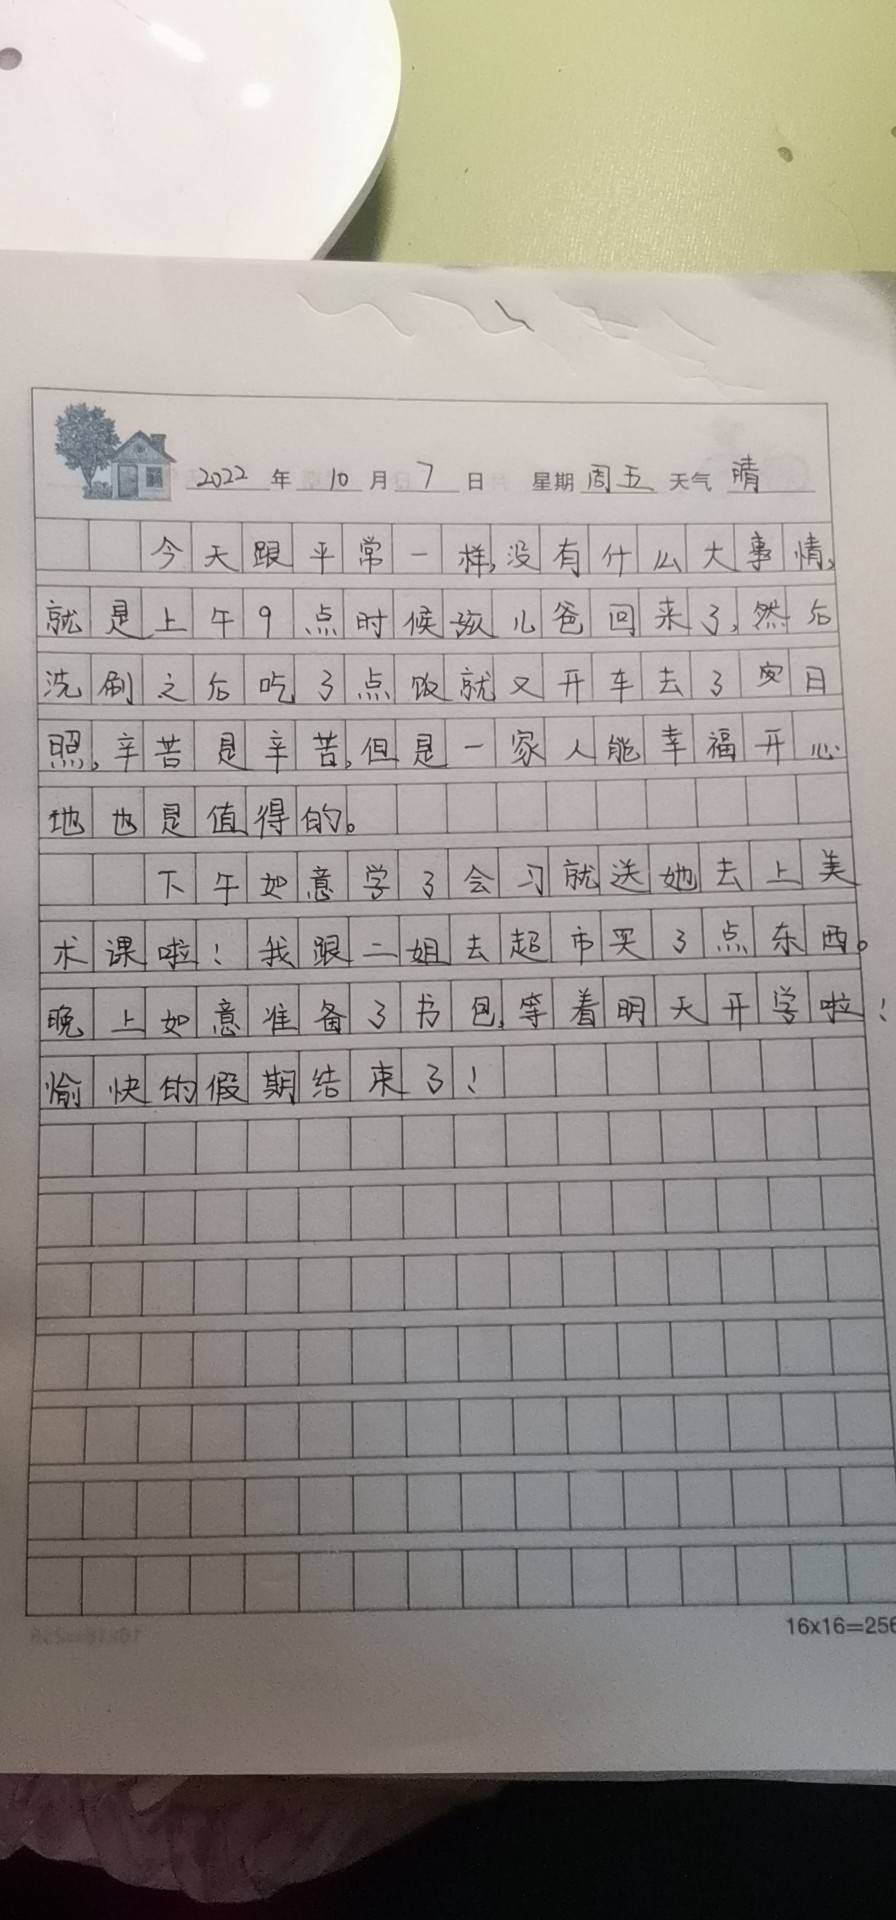 2022 年 10 月 7 日 星期 周五 天气 晴
今天跟平常一样,没有什么大事情,
就是上午9点时候孩儿爸回来了,然后
洗刷之后吃了点饭就又开车去了安日
照,辛苦是辛苦,但是一家人能幸福开心
地也是值得的。
下午如意学了会习就送她去上美
术课啦!我跟二姐去超市买了点东西。
晚上如意准备了书包,等着明天开学啦!
愉快的假期结束了!
16x16=256